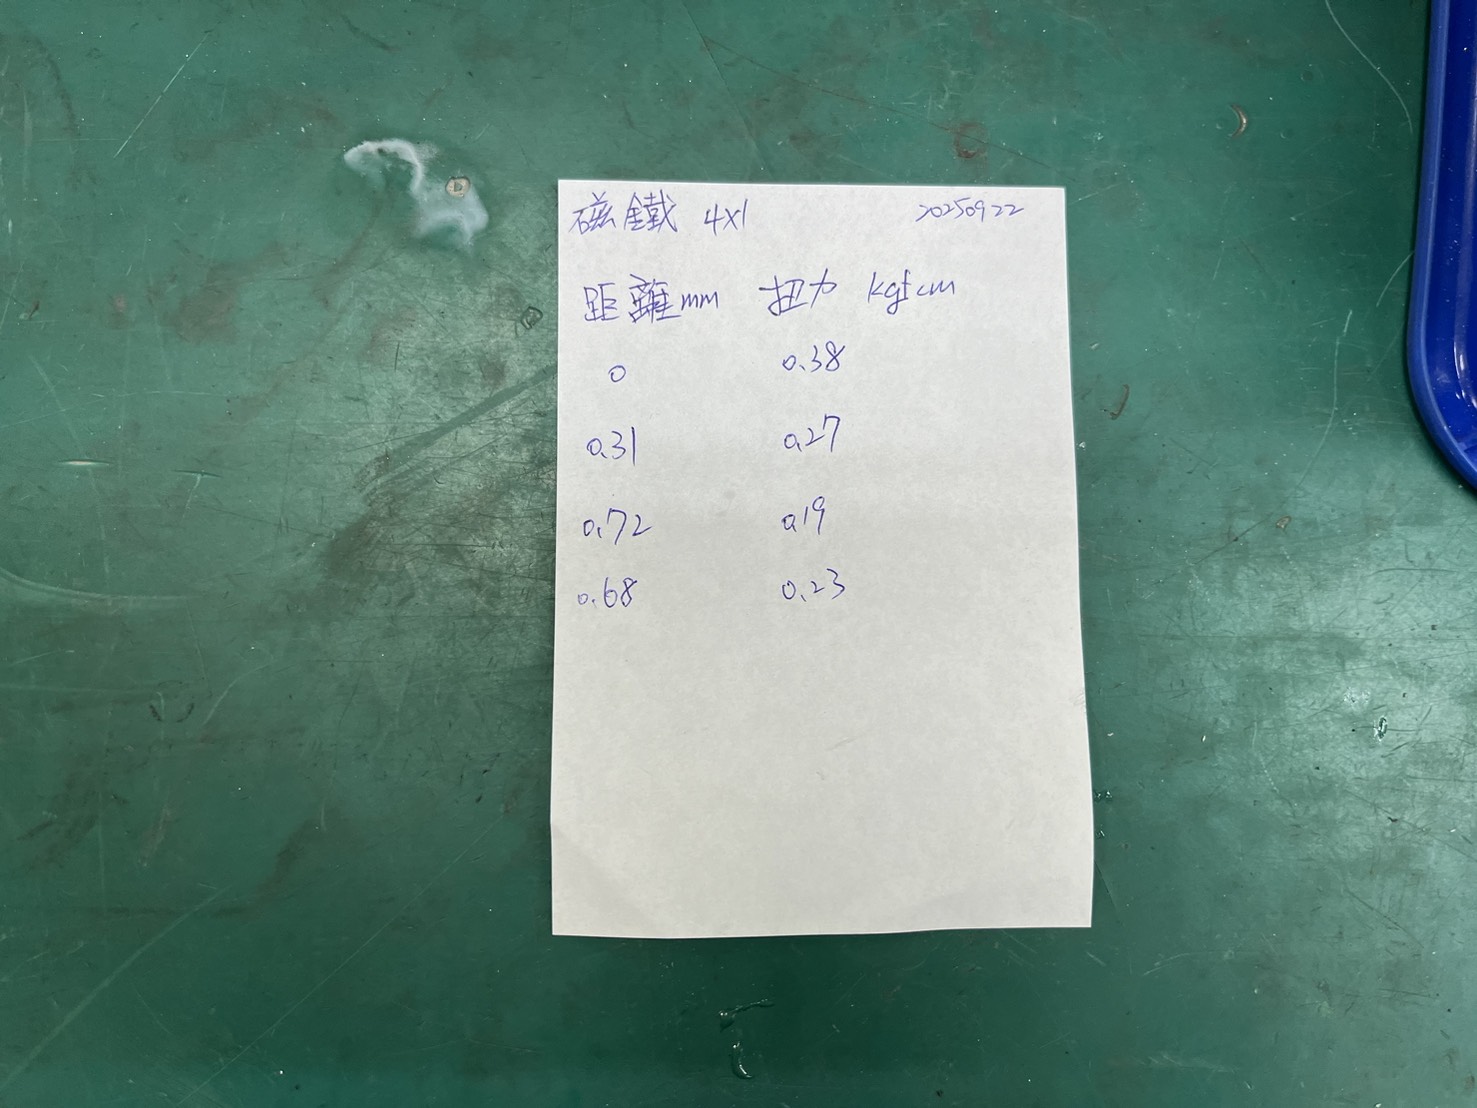 磁鐵 4x1 20250922
距離mm 扭力 kgfcm
0 0.38
0.31 0.27
0.72 0.19
0.68 0.23